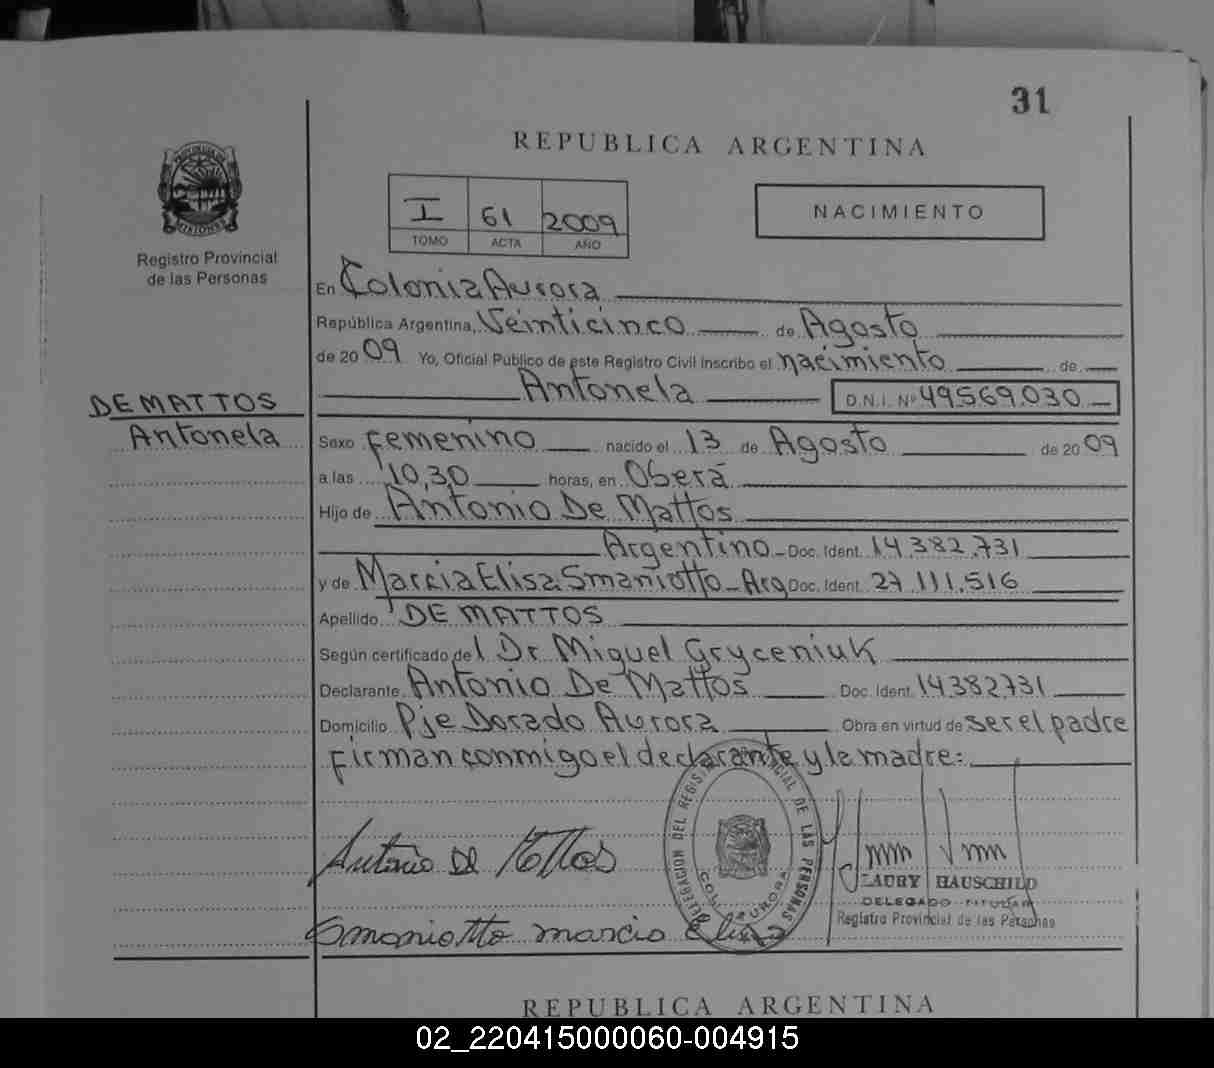 31
REPUBLICA ARGENTINA
I 61 2009
TOMO ACTA AÑO
NACIMIENTO
PROVINCIA DE MISIONES
Registro Provincial
de las Personas
En Colonia Aurora
República Argentina, Veinticinco de Agosto
de 2009 Yo, Oficial Publico de este Registro Civil inscribo el nacimiento de
Antonela D.N.I. Nº 49.569.030
DE MATTOS
Antonela
Sexo femenino nacido el 13 de Agosto de 2009
a las 10,30 horas, en Oberá
Hijo de Antonio De Mattos
Argentino Doc. Ident. 14.382.731
y de Marcia Elisa Smaniotto - Arg Doc. Ident. 27.111.516
Apellido DE MATTOS
Según certificado del Dr Miguel Gryceniuk
Declarante Antonio De Mattos Doc. Ident. 14382731
Domicilio Pje Dorado Aurora Obra en virtud de ser el padre
firman conmigo el declarante y la madre:
Antonio De Mattos
DELEGACION DEL REGISTRO PROVINCIAL DE LAS PERSONAS
COL. AURORA
LAURY HAUSCHILD
DELEGADO TITULAR
Registro Provincial de las Personas
Smaniotto marcia Elisa
REPUBLICA ARGENTINA
02_220415000060-004915